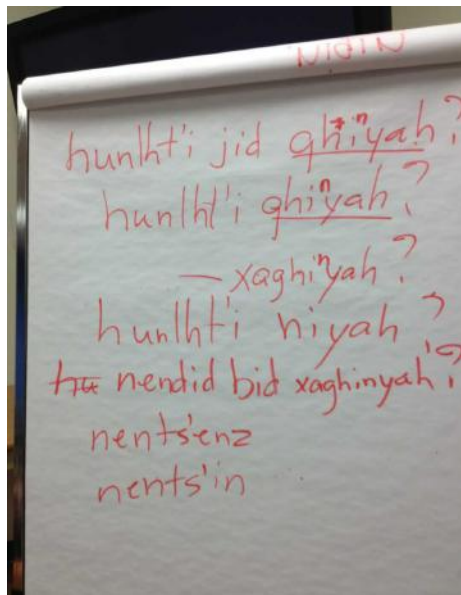 NIDIN
hunlht'i jid ghinyah?
hunlht'i ghinyah?
— xaghinyah?
hunlht'i niyah?
nendid bid xaghinyah'?
nents'enz
nents'in